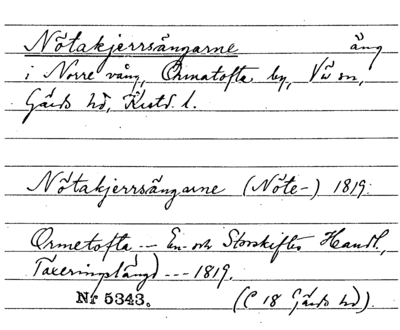 Nötakjerrsängarne äng
i Norre vång, Ormatofta by, Vä sn,
Gärds hd, Krist. l.
Nötakjerrsängarne (Nöte-) 1819.
Ormetofta --- En- och Storskiftes Handl.,
Taxeringslängd --- 1819.
Nr 5343. (C 18 Gärds hd).